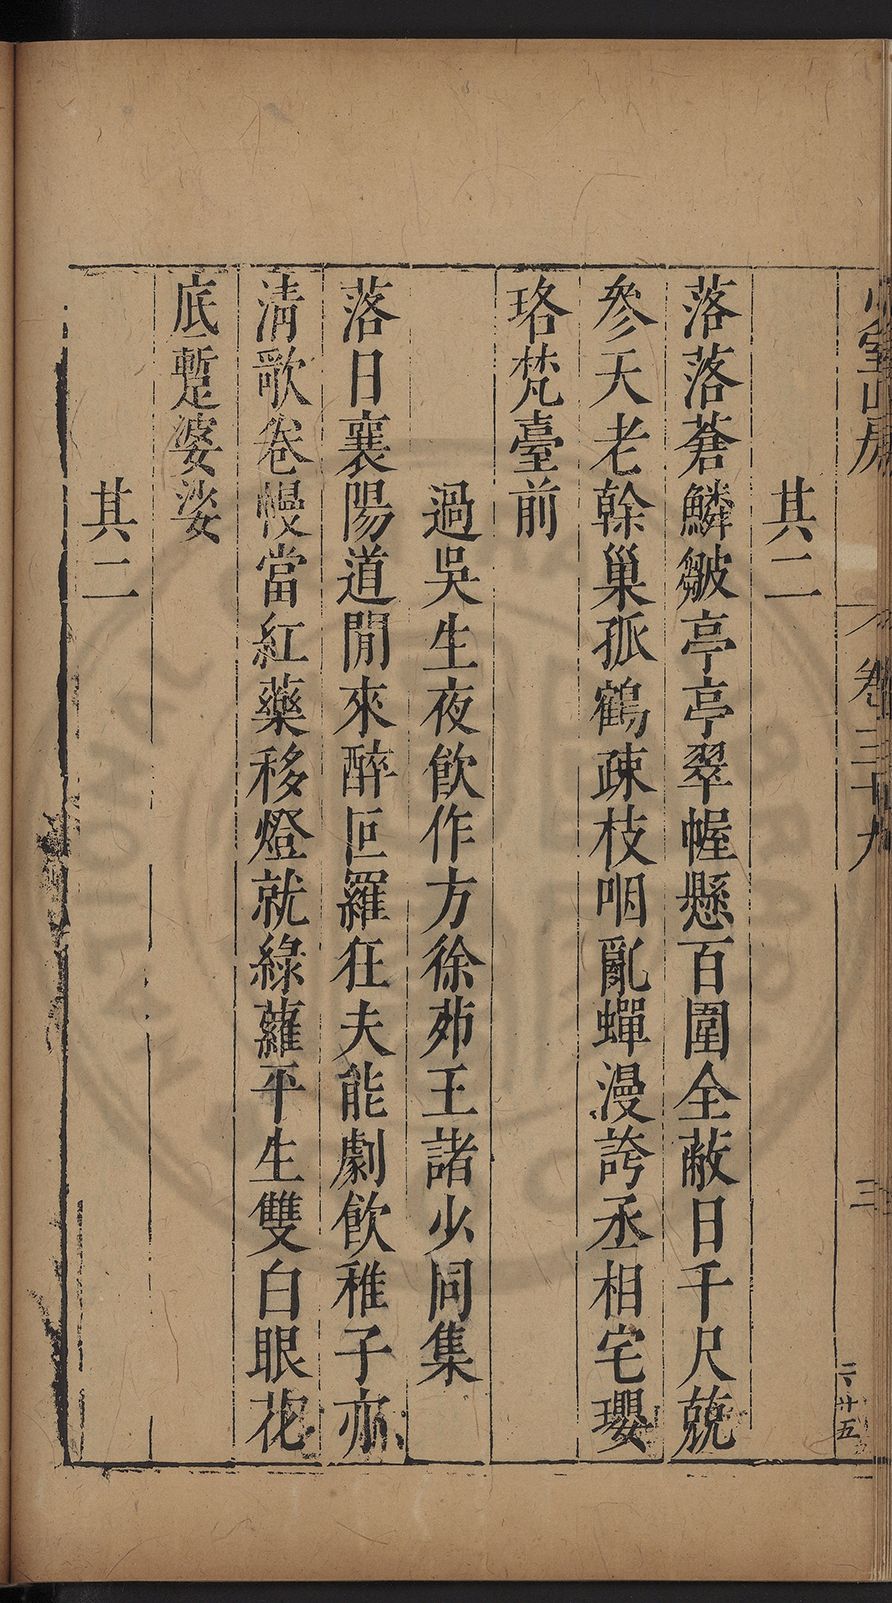 少室山房
卷三十九
三
二、廿五
其二
落落蒼鱗皺亭亭翠幄懸百圍全蔽日千尺兢
參天老榦巢孤鶴疎枝咽亂蟬漫誇丞相宅瓔
珞梵臺前
過吳生夜飲作方徐茆王諸少同集
落日襄陽道閒來醉叵羅狂夫能劇飲稚子亦
清歌卷幔當紅藥移燈就綠蘿平生雙白眼花
底蹔婆娑
其二